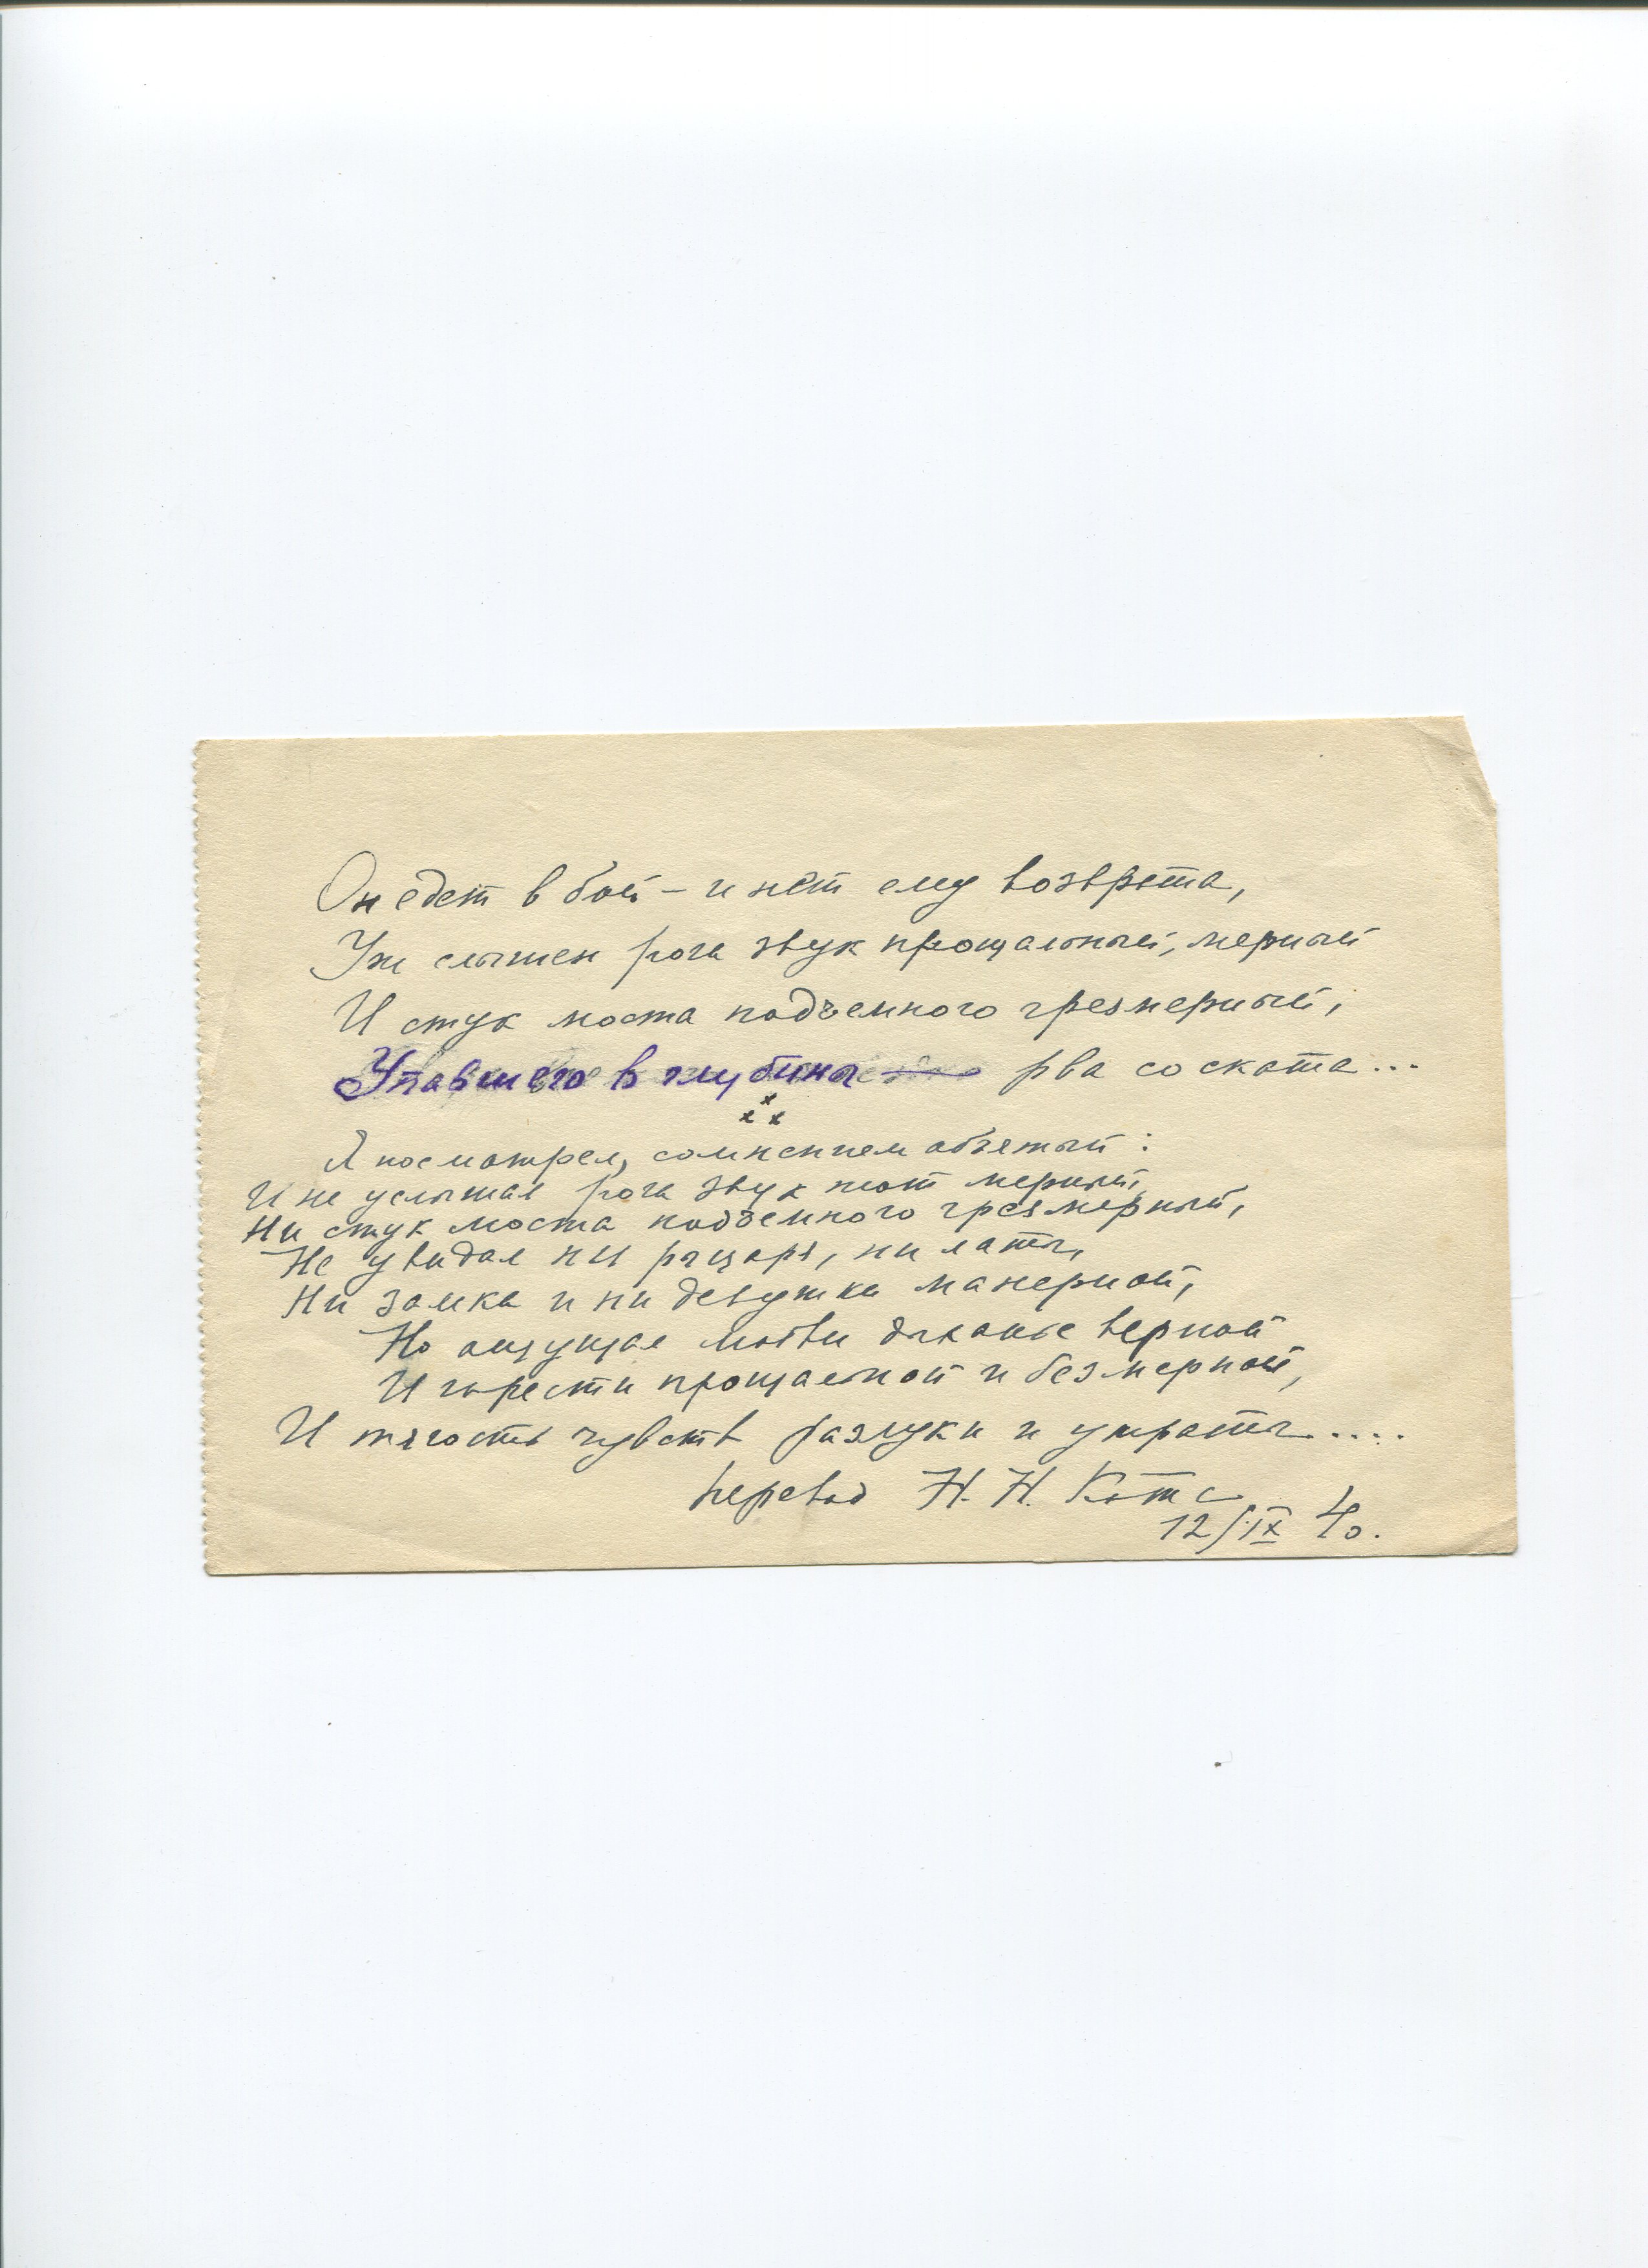 Он едет в бой – и нет ему возврата,
Уж слышен рога звук прощальный, мерный
И стук моста подъемного чрезмерный,
Упавшего в глубины рва со ската...
х х х
Я посмотрел, сомненьем объятый:
И не услышал рога звук тот мерный,
Ни стук моста подъемного чрезмерный,
Не увидал ни рыцаря, ни латы,
Ни замка и ни девушки манерной,
Но ощущал любви дыханье верной
И горести прощальной и безмерной,
И тягость чувств разлуки и утраты....
перевод Н. Н. Котс
12/IX 40.